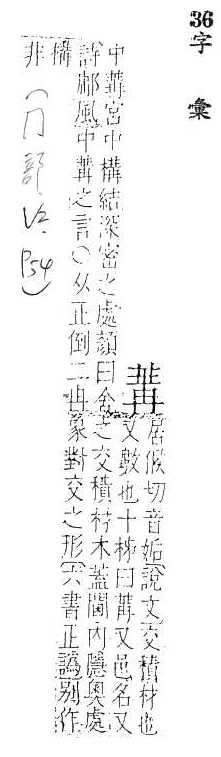 36字彙
冓
居候切音姤說文交積材也
又數也十秭曰冓又邑名又
中冓宮中構結深密之處顏曰舍之交積材木蓋閫內隱奧處
詩鄘風中冓之言○从正倒二冉象對交之形六書正譌別作
構非
(冂部 P54)